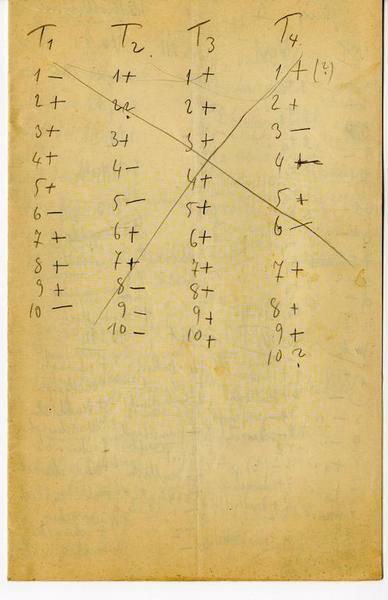 T1 T2 T3 T4
1 – 1+ 1+ 1+ (?)
2 + 2? 2+ 2+
3+ 3+ 3+ 3 –
4+ 4 – 4+ 4
5+ 5 – 5+ 5+
6 – 6+ 6+ 6 –
7+ 7+ 7+ 7+
8+ 8 – 8+ 8+
9+ 9 – 9+ 9+
10 – 10 – 10+ 10 ?